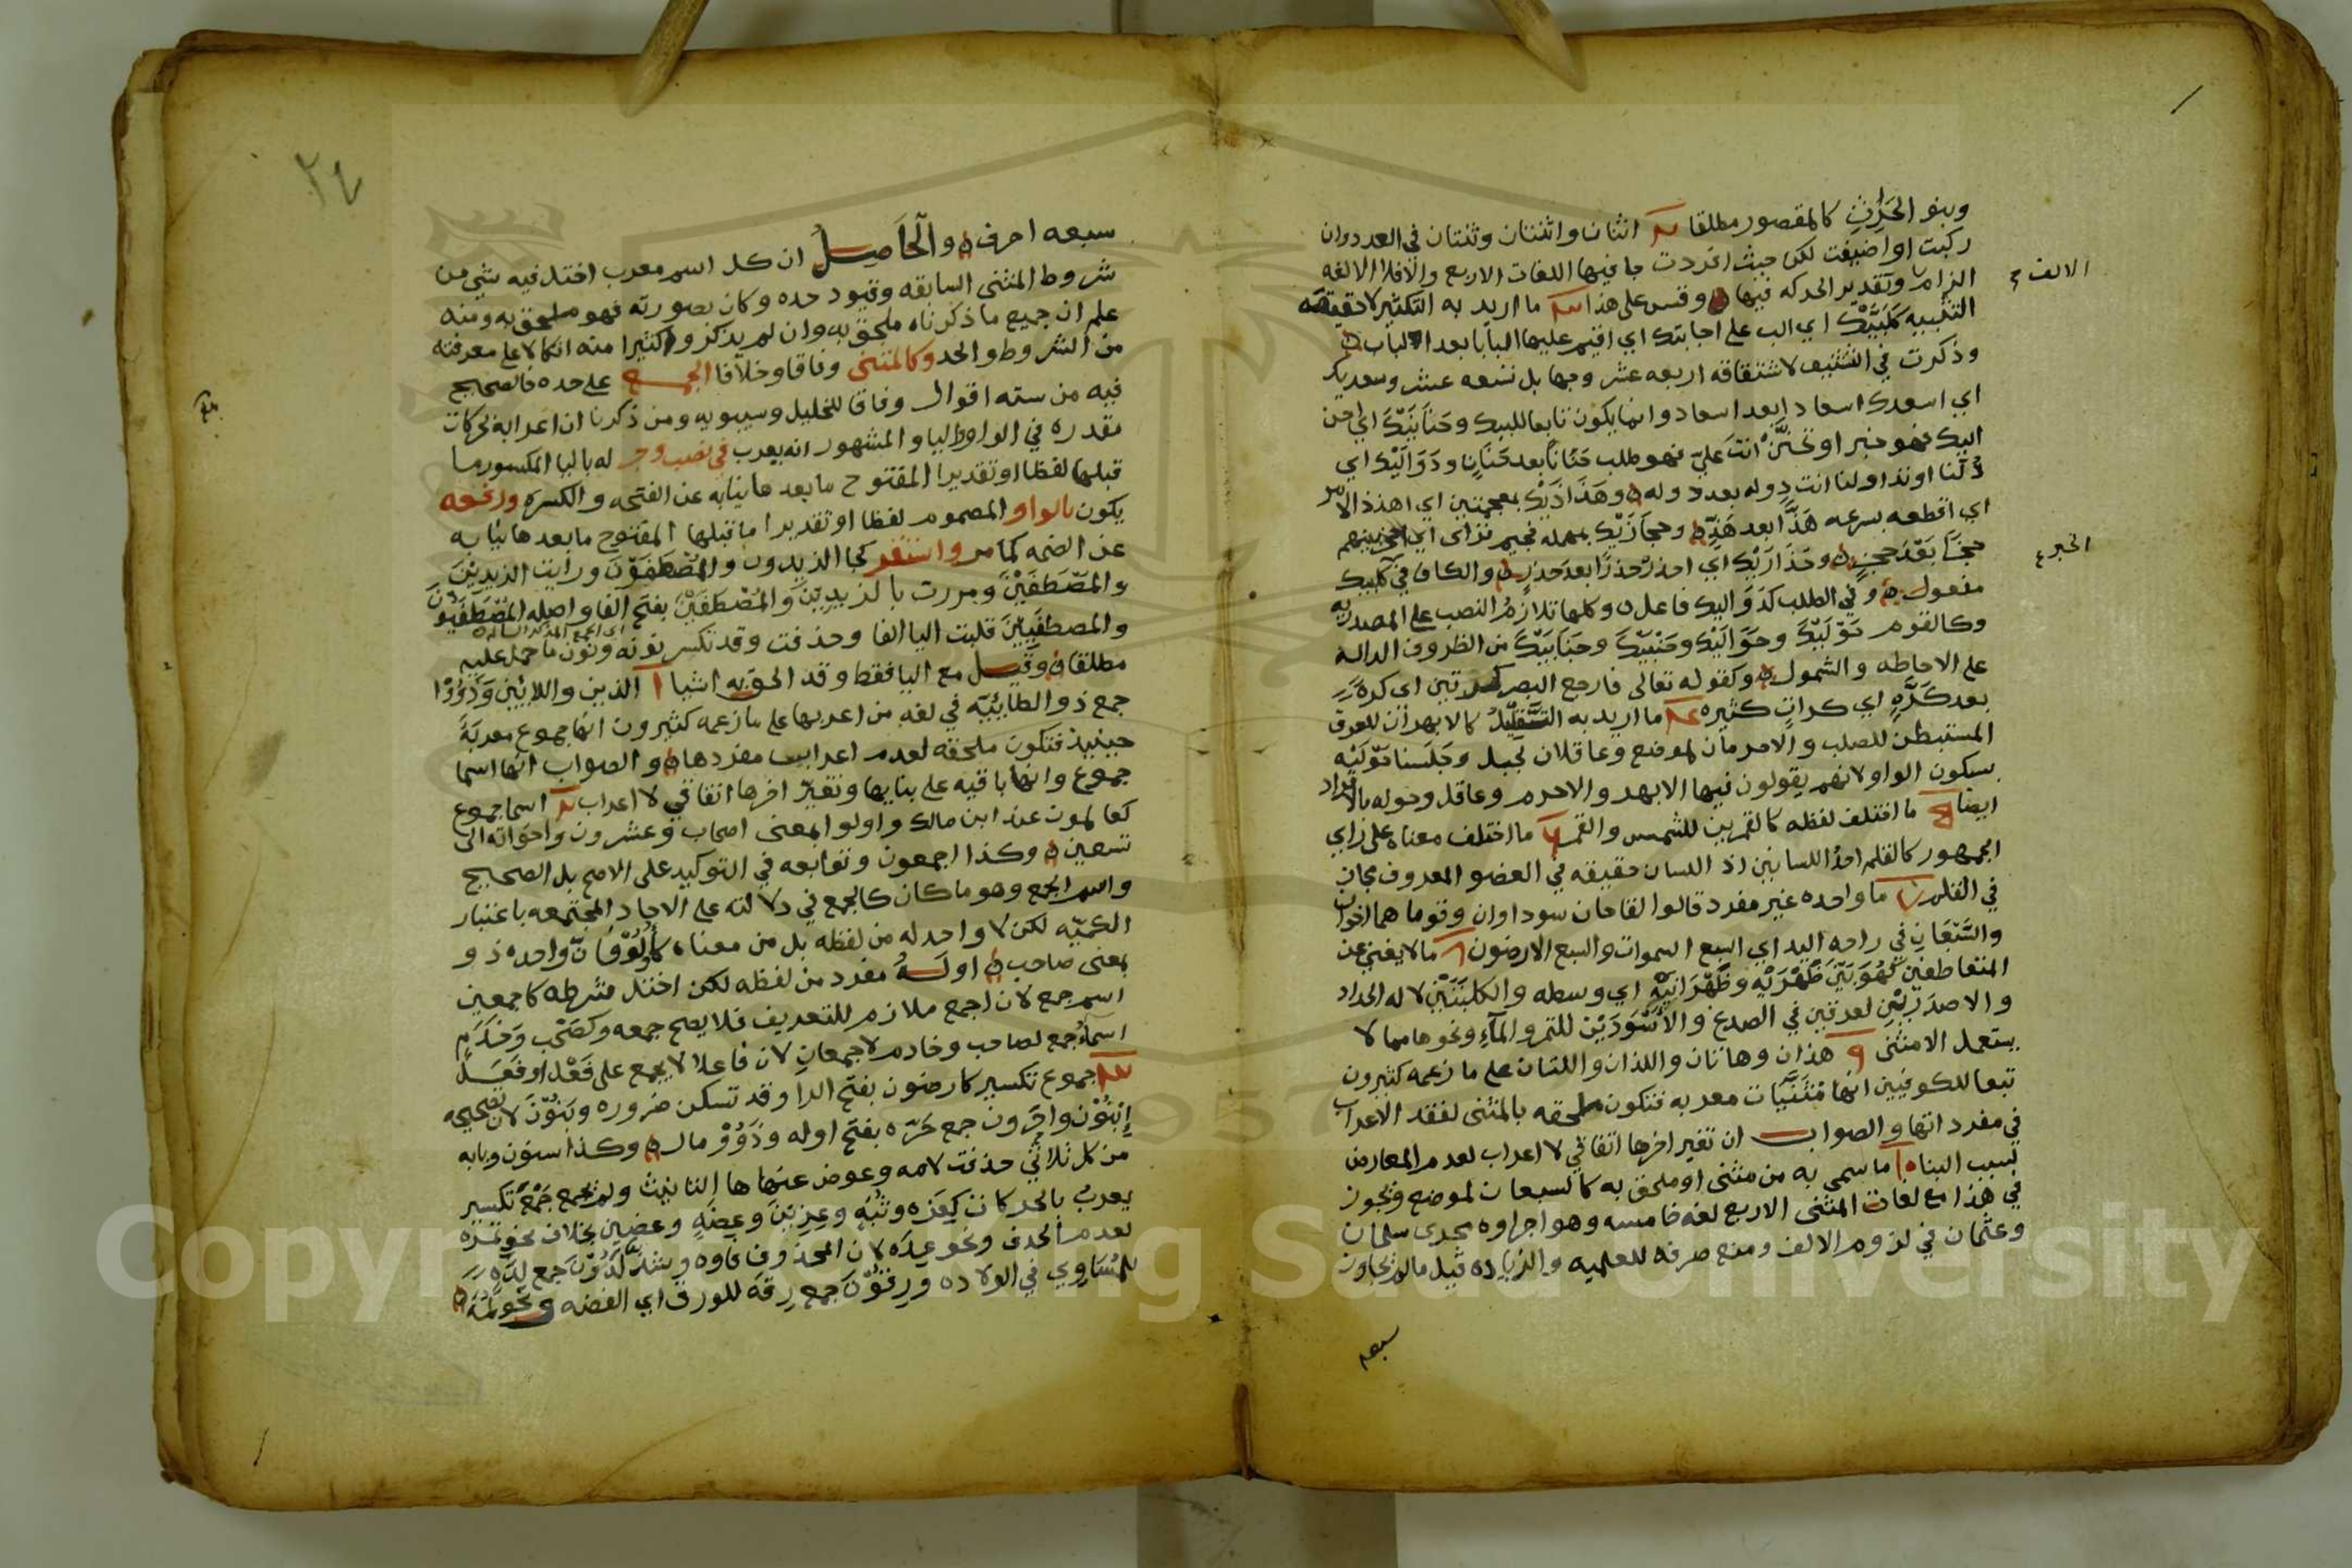 وبنو الحرث كالمقصور مطلقا اثنان واثنتان وثنتان في العدد وان
ركبت او اضيفت لكن حيث افردت جا فيها اللغات الاربع والا فلا الا لغه
الزام وتقدير الحركه فيها وقس على هذا ما اريد به التكثير لا حقيقة
التثنيه كلبيك اي الب على اجابتك اي اقيم عليها البابا بعد الباب
وذكرت في لاشتقاقه اربعه عشر وجها بل تسعه عشر وسعديك
اي اسعدك اسعادا بعد اسعاد وانما يكون تابعا للبيك وحنانيك اي احن
اليك فهو خبر او تحنن انت علي فهو طلب حنانا بعد حنان ودواليك اي
دلنا او نداولنا انت دوله بعد دوله وهذاذيك بمعجمتين اي اهذذ الامر
اي اقطعه بسرعه هذا بعد هذ وحجازيك بمهمله فجيم فزاي اي احجز بينهم
حجزا بعد حجز وحذاريك اي احذر حذرا بعد حذر والكاف في كلبيك
مفعول وفي الطلب كدواليك فاعل وكلها تلازم النصب على المصدريه
وكالقوم حوليك وحواليك وجنبيك وجنابيك من الظروف الداله
على الاحاطه والشمول وكقوله تعالى فارجع البصر كرتين اي كرة
بعد كره اي كرات كثيره ما اريد به التغليب كالابهران للعرق
المستبطن للصلب والاحرمان لموضع وعاقلان لجبل وجلسنا حوليه
بسكون الواو لانهم يقولون فيها الابهر والاحرم وعاقل وحوله بالافراد
ايضا ما اختلف لفظه كالقمرين للشمس والقمر ما اختلف معناه على راي
الجمهور كالقلم احد اللسانين اذ اللسان حقيقه في العضو المعروف مجاز
في القلم ما واحده غير مفرد قالوا لقاحان سوداوان وقوما هما اخوان
والسبعان في راحه اليد اي السبع السموات والسبع الارضون ما لا يغني عن
المتعاطفين كهو بين ظهريه وظهرانيه اي وسطه والكلبتين لاله الحداد
والاصدرين لعرقين في الصدغ والاسودين للتمر والماء ونحوها مما لا
يستعمل الا مثنى هذان وهاتان واللذان واللتان على ما زعمه كثيرون
تبعا للكوفيين انها مثنيات معربه فتكون ملحقه بالمثنى لفقد الاعراب
في مفرداتها والصواب ان تغير اخرها اتفاقي لا اعراب لعدم المعارض
لسبب البنا ما سمي به من مثنى او ملحق به كالسبعان لموضع ويجوز
في هذا مع لغات المثنى الاربع لغه خامسه وهو اجراوه مجرى سلمان
وعثمان في لزوم الالف ومنع صرفه للعلميه والزياده قيل ما لم يجاوز
سبعه
الالف
الخبر
٢٤
سبعه احرف والحاصل ان كل اسم معرب اختل فيه شي من
شروط المثنى السابقه وقيود حده وكان بصورته فهو ملحق به ومنه
علم ان جميع ما ذكرناه ملحق به وان لم يذكروا كثيرا منه اتكالا على معرفته
من الشروط والحد وكالمثنى وفاقا وخلافا الجمع على حده فالصحيح
فيه من سته اقوال وفاقا للخليل وسيبويه ومن ذكرنا ان اعرابه بحركات
مقدره في الواو واليا والمشهور انه يعرب في نصب وجر له باليا المكسور ما
قبلها لفظا او تقديرا المفتوح ما بعدها نيابه عن الفتحه والكسره ورفعه
يكون بالواو المضموم لفظا او تقديرا ما قبلها المفتوح ما بعدها نيابه
عن الضمه كما مر واستقر كجا الزيدون والمصطفون ورايت الزيدين
والمصطفين ومررت بالزيدين والمصطفين بفتح الفا واصله المصطفيون
والمصطفيين قلبت اليا الفا وحذفت وقد تكسر نونه ونون ما حمل عليه
اي الجمع المذكر السالم
مطلقا وقيل مع اليا فقط وقد الحق به اشيا الذين واللايين وذوو
جمع ذو الطاييه في لغه من اعربها على ما زعمه كثيرون انها جموع معربة
حينيذ فتكون ملحقه لعدم اعراب مفردها والصواب انها اسما
جموع وانها باقيه على بنايها وتغير اخرها اتفاقي لا اعراب اسما جموع
كعالمون عند ابن مالك واولو المعنى اصحاب وعشرون واخواته الى
تسعين وكذا اجمعون وتوابعه في التوكيد على الاصح بل الصحيح
واسم الجمع وهو ما كان كالجمع في دلالته على الاحاد المجتمعه باعتبار
الكميه لكن لا واحد له من لفظه بل من معناه كاولو فان واحده ذو
بمعنى صاحب او له مفرد من لفظه لكن اختل شرطه كاجمعين
اسم جمع لان اجمع ملازم للتعريف فلا يصح جمعه وكصحب وخدم
اسما جمع لصاحب وخادم لا جمعان لان فاعلا لا يجمع على فعل او فعل
جموع تكسير كارضون بفتح الرا وقد تسكن ضروره وبنون لان تصحيحه
ابنون واحرون جمع حره بفتح اوله وذوو مال وكذا سنون وبابه
من كل ثلاثي حذفت لامه وعوض عنها ها التانيث ولم يجمع جمع تكسير
يعرب بالحركات كعزه وثبه وعزين وعضه وعضين بخلاف نحو تمره
لعدم الحذف ونحو عده لان المحذوف فاوه وشذ لدون جمع لده
للمساوي في الولاده ورقون جمع رقه للورق اي الفضه ونحو
Copyright © King Saud University
1957